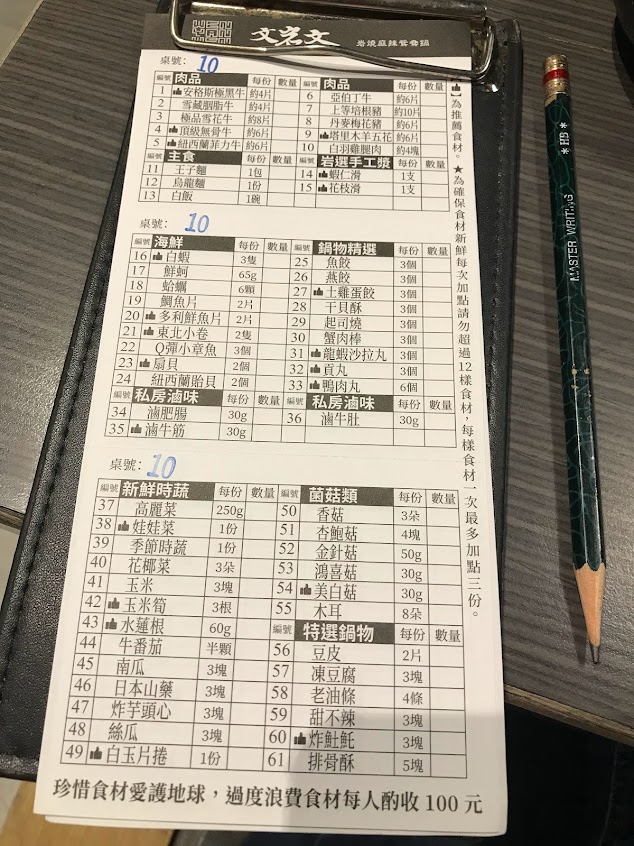 文君文 岩燒麻辣鴛鴦鍋
桌號: 10
編號 肉品 每份 數量 編號 肉品 每份 數量
1 安格斯極黑牛 約4片 6 亞伯丁牛 約6片
2 雪藏胭脂牛 約4片 7 上等培根豬 約10片
3 極品雪花牛 約8片 8 丹麥梅花豬 約6片
4 頂級無骨牛 約6片 9 塔里木羊五花 約6片
5 紐西蘭菲力牛 約6片 10 白羽雞腿肉 約4塊
編號 主食 每份 數量 編號 岩選手工漿 每份 數量
11 王子麵 1包 14 蝦仁滑 1支
12 烏龍麵 1份 15 花枝滑 1支
13 白飯 1碗
桌號: 10
編號 海鮮 每份 數量 編號 鍋物精選 每份 數量
16 白蝦 3隻 25 魚餃 3個
17 鮮蚵 65g 26 燕餃 3個
18 蛤蠣 6顆 27 土雞蛋餃 3個
19 鯛魚片 2片 28 干貝酥 3個
20 多利鮮魚片 2片 29 起司燒 3個
21 東北小卷 2隻 30 蟹肉棒 3個
22 Q彈小章魚 3個 31 龍蝦沙拉丸 3個
23 扇貝 2個 32 貢丸 3個
24 紐西蘭貽貝 2個 33 鴨肉丸 6個
編號 私房滷味 每份 數量 編號 私房滷味 每份 數量
34 滷肥腸 30g 36 滷牛肚 30g
35 滷牛筋 30g
桌號: 10
編號 新鮮時蔬 每份 數量 編號 菌菇類 每份 數量
37 高麗菜 250g 50 香菇 3朵
38 娃娃菜 1份 51 杏鮑菇 4塊
39 季節時蔬 1份 52 金針菇 50g
40 花椰菜 3朵 53 鴻喜菇 30g
41 玉米 3塊 54 美白菇 30g
42 玉米筍 3根 55 木耳 8朵
43 水蓮根 60g 編號 特選鍋物 每份 數量
44 牛番茄 半顆 56 豆皮 2片
45 南瓜 3塊 57 凍豆腐 3塊
46 日本山藥 3塊 58 老油條 4條
47 炸芋頭心 3塊 59 甜不辣 3塊
48 絲瓜 3塊 60 炸魠魠 3塊
49 白玉片捲 1份 61 排骨酥 5塊
珍惜食材愛護地球，過度浪費食材每人酌收 100 元
【】為推薦食材。★為確保食材新鮮每次加點請勿超過12樣食材，每樣食材一次最多加點三份。
MASTER WRITING *HB*